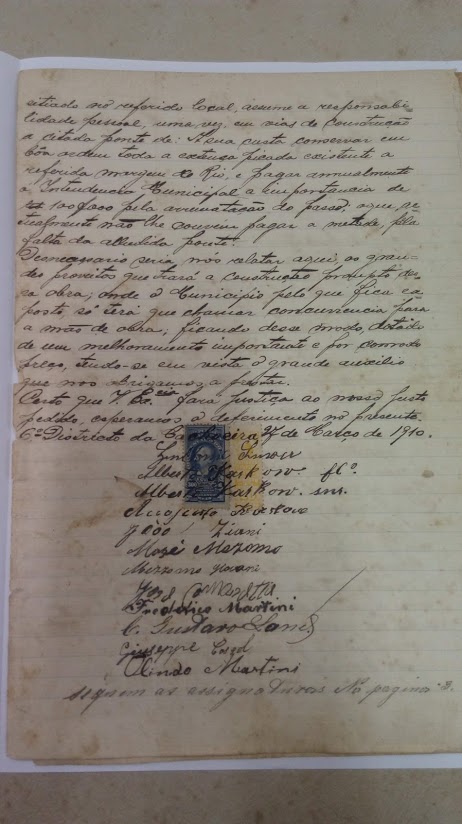 situado no referido local, assume a responsabi-
lidade pessoal, uma vez em vias de construcção
a citada ponte de: Á sua custa conservar em
bôa ordem toda a extença picada existente a
referida margem do Rio, e pagar annualmente
a Intendencia Municipal a importancia de
100$000 pela arrematação do passo, o que, ac-
tualmente não lhe convem pagar a metade, pela
falta da alludida ponte.
Desnecessario seria, nós relatar aqui, os gran-
des proveitos que trará a construcção prompta des-
sa obra; onde o Municipio pelo que fica ex-
posto, só terá que chamar concurrencia para
a mão de obra, ficando desse modo, dotado
de um melhoramento importante e por commodo
preço, tendo-se em vista o grande auxilio
que nos obrigamos a prestar.
Certo que V. Excia fará justiça ao nosso justo
pedido, esperamos o deferimento no presente.
6º Districto da Cachoeira, 27 de Março de 1910.
Alberto Karkow. fº.
Alberto Karkow. snr.
Augusto
João Ziani
Mozé Mezomo
Mezzomo
José
Frederico Martini
C. Gustavo
Giuseppe
Olindo Martini
seguem as assignaturas na pagina 3.